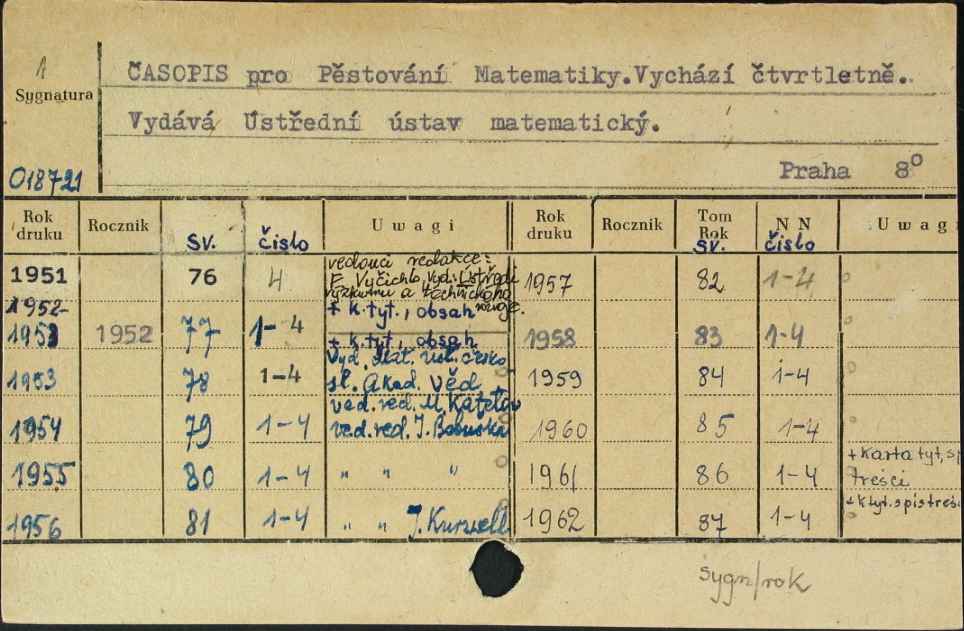 1
Sygnatura
018721
ČASOPIS pro Pěstování Matematiky. Vychází čtvrtletně.
Vydává Ústřední ústav matematický.
Praha 8°
Rok druku Rocznik sv. číslo Uwagi Rok druku Rocznik Tom Rok sv. NN číslo Uwagi
1951 76 4 vedoucí redakce: F. Vyčichlo, Vyd. Ústřední výzkumu a technického rozvoje. 1957 82 1-4
+ k. tyt., obsah
1952-
1953 1952 77 1-4 + k. tyt., obsah 1958 83 1-4
1953 78 1-4 Vyd. Mat. úst. česko sl. Akad. Věd 1959 84 1-4
ved. red. M. Katětov
1954 79 1-4 ved. red. J. Babuška 1960 85 1-4
1955 80 1-4 " " " 1961 86 1-4 + karta tyt, sp treści
1956 81 1-4 " " J. Kurzweil 1962 87 1-4 + k tyt. spis treści
sygn/rok